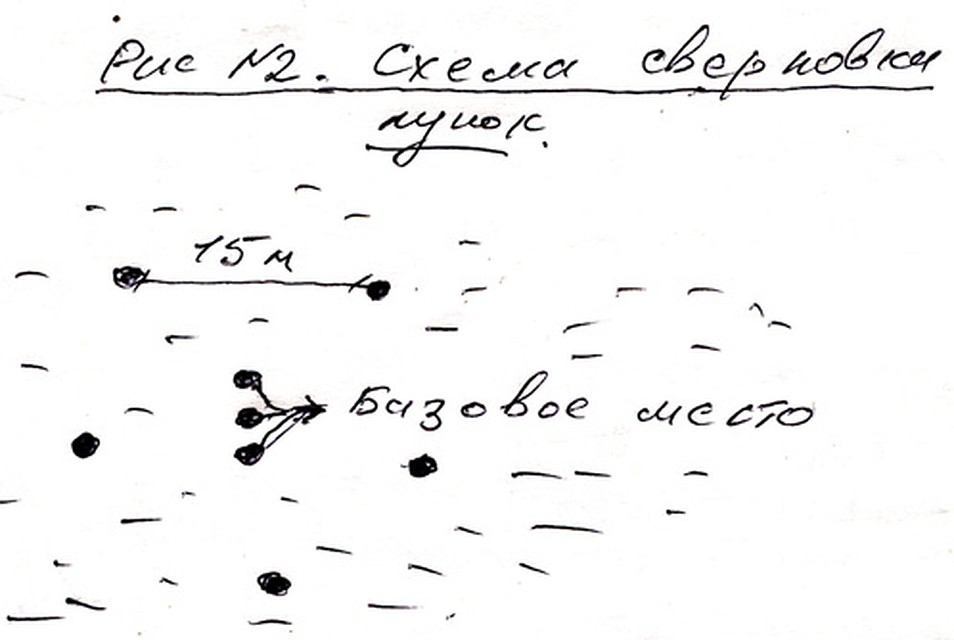 Рис N2. Схема сверловки
лунок.
15 м
Базовое место